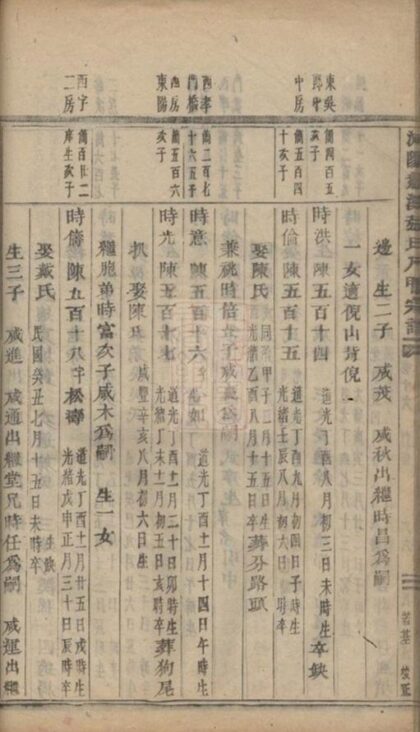 東吳
四百五
亥子
中房
五百四
十亥子
西孝
二百七
門橋
西房
五百六
東陽
亥子
西字
二房
庠生亥子
邊 生二子 咸茂 咸秋出繼時昌爲嗣
一女適倪山背倪
時洪生 陳五百十四 道光丁酉八月初三日未時生 卒缺
時倫 陳五百十五 道光丁酉九月初四日子時生
光緒壬辰八月初六日 時卒
娶陳氏 同治甲子二月十五日生
光緒乙酉八月十五日卒 葬分路頭
兼祧時倍 子咸義爲嗣
時意 陳五百十六 字如 道光丁酉十月十四日午時生
時光 陳五百十七 道光丁酉十二月二十日卯時生
光緒丁未十一月初五日亥時卒 葬狗尾
扒 娶陳氏 咸豐辛亥八月初六日生
繼胞弟時富亥子咸木爲嗣 生一女
時脩 陳五百十八 字松壽 道光丁酉十二月廿五日戌時生
光緒戊申正月三十日辰時卒
娶戴氏 生缺
民國癸丑七月十五日未時卒
生三子 咸進 咸通出繼堂兄時任爲嗣 咸運出繼